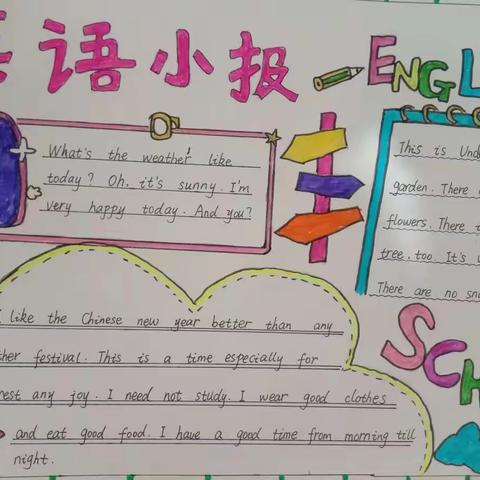 语小报
ENGL
What's the weather like
today? Oh, it's sunny. I'm
very happy today. And you?
This is Und
garden. There
flowers. There
tree, too. It's
There are no sno
I like the Chinese new year better than any
ther festival. This is a time especially for
rest any joy. I need not study. I wear good clothes
and eat good food. I have a good time from morning till
night.
SCH